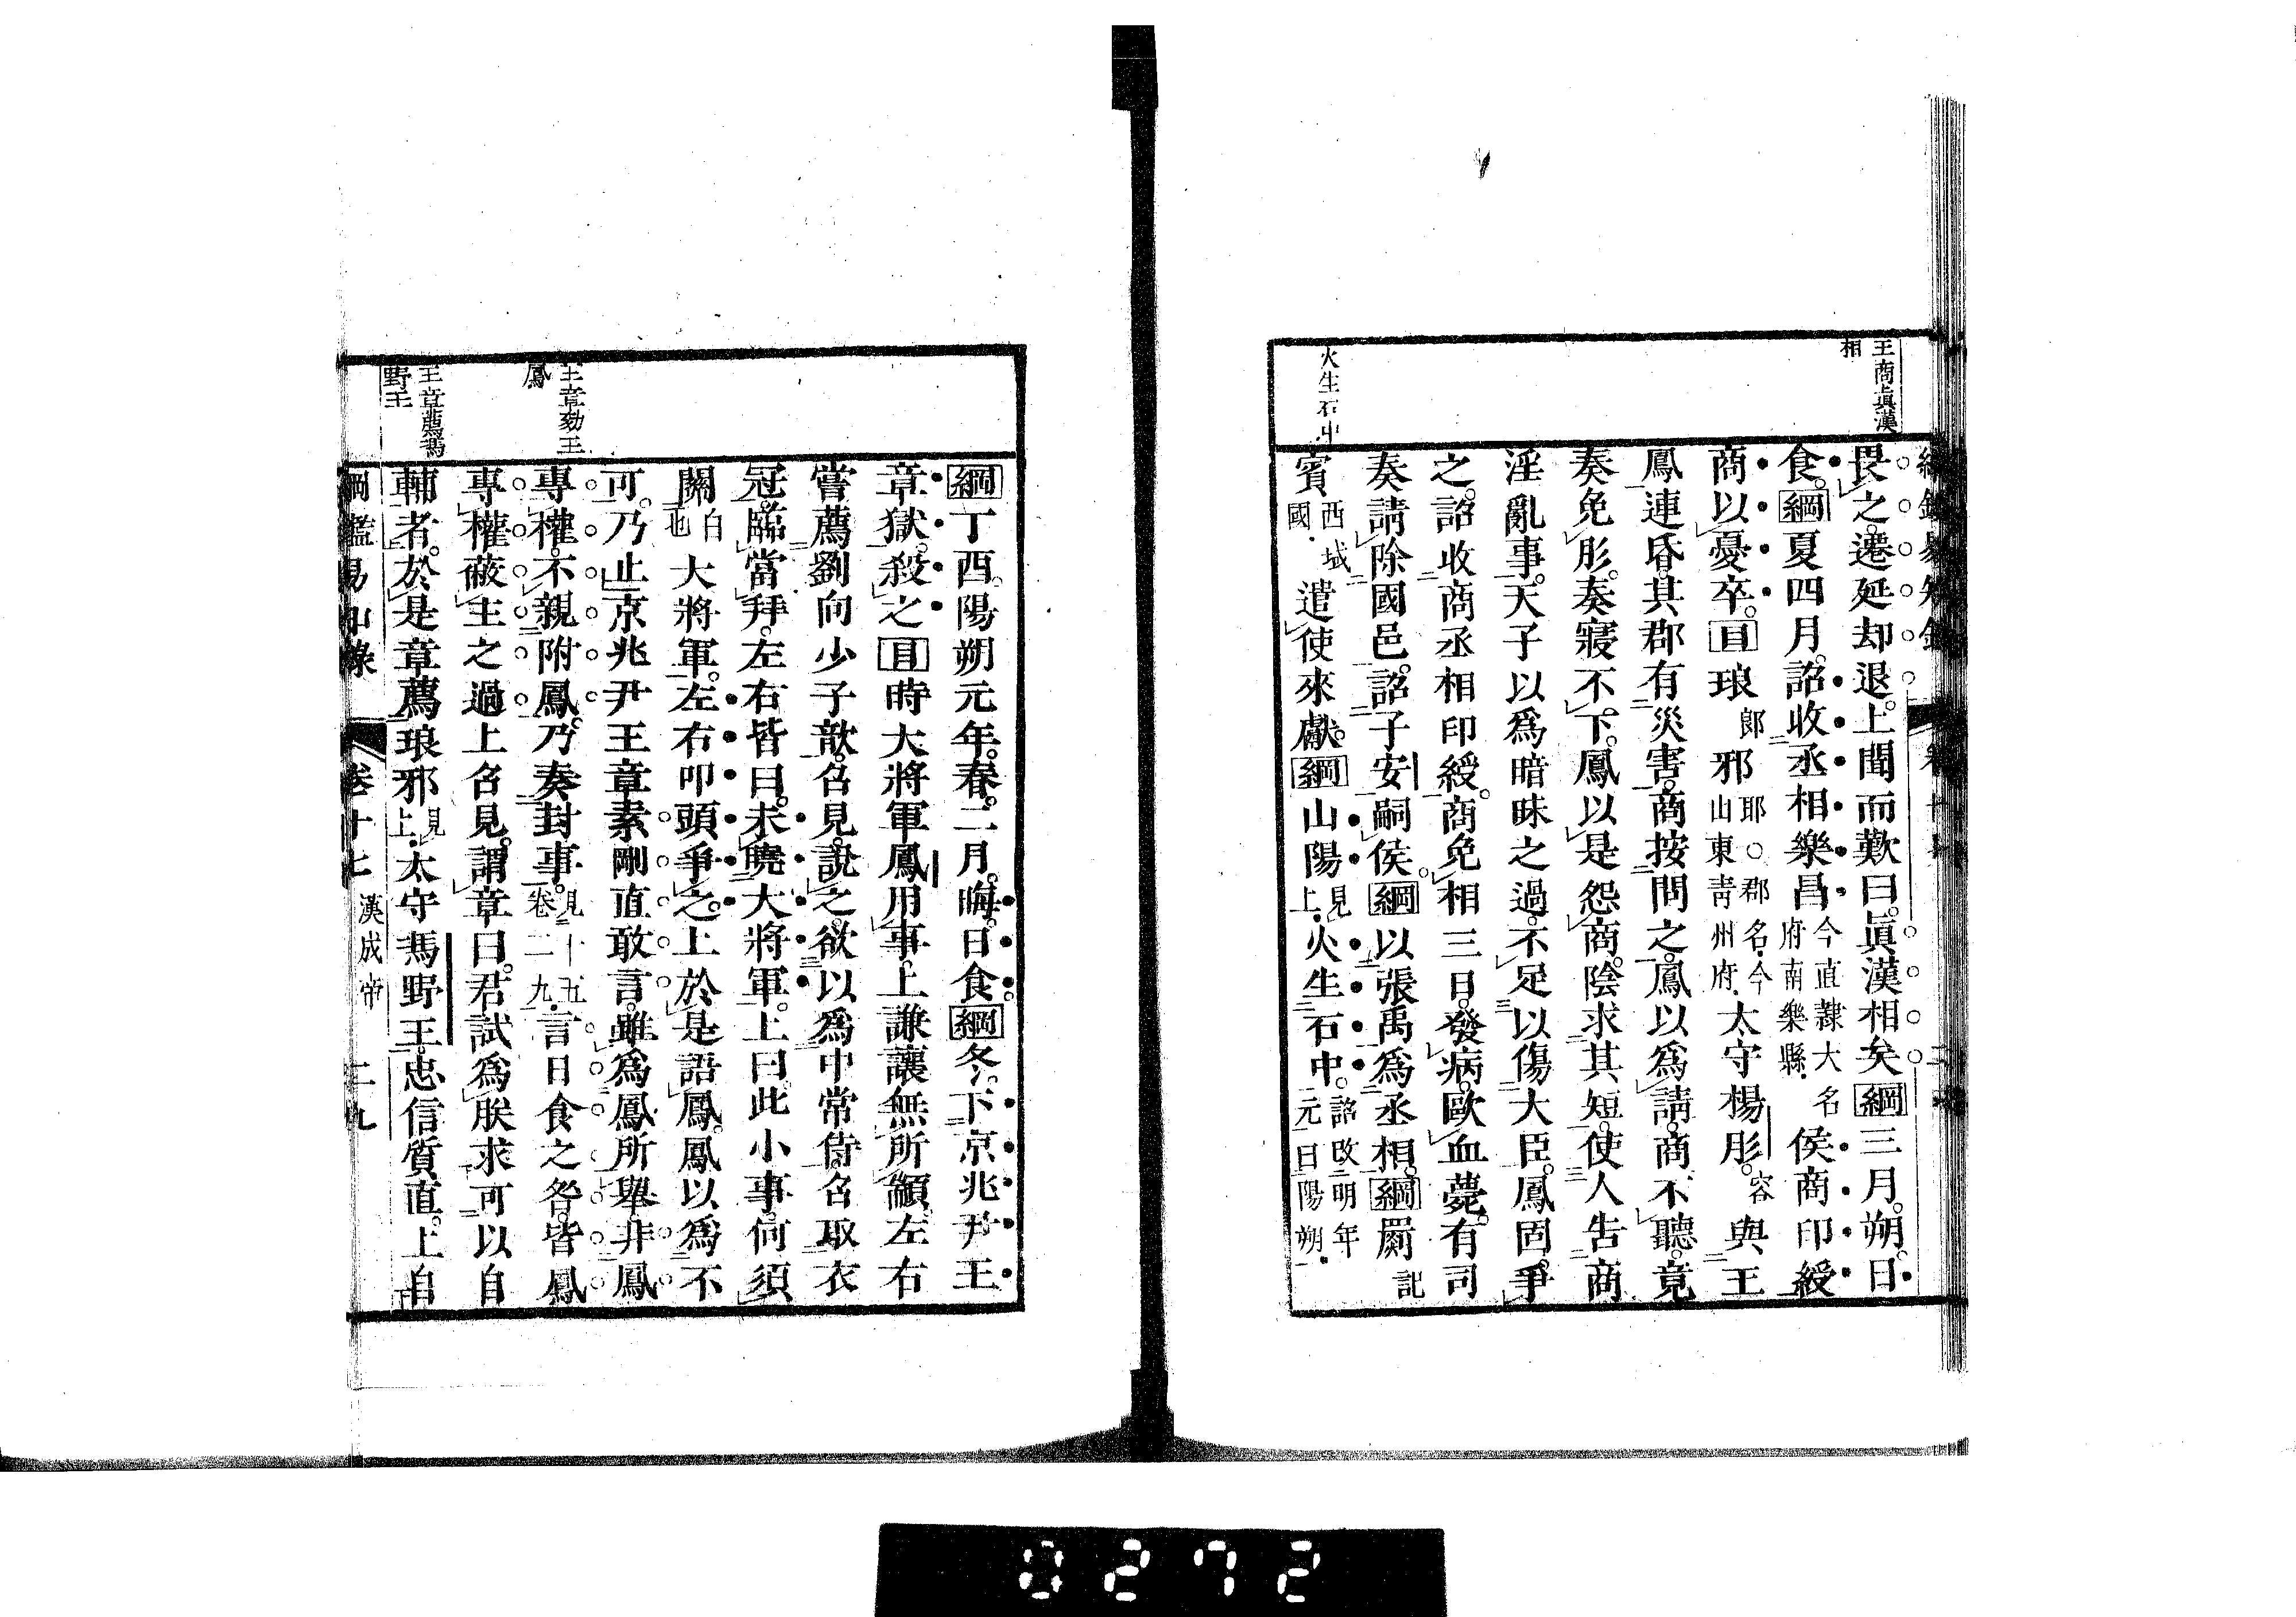 王商眞漢
相
畏之遷延却退上聞而歎曰眞漢相矣綱三月朔日
食綱夏四月詔收丞相樂昌今直隷大名府南樂縣侯商印綬
商以憂卒目琅郞邪耶○郡名今山東靑州府太守楊肜容與王
鳳連昏其郡有災害商按問之鳳以爲請商不聽竟
奏免肜奏寢不下鳳以是怨商陰求其短使人告商
淫亂事天子以爲暗昧之過不足以傷大臣鳳固爭
之詔收商丞相印綬商免相三日發病歐血薨有司
奏請除國邑詔子安嗣侯綱以張禹爲丞相綱罽記
火生石中
賓西域國遣使來獻綱山陽見上火生石中詔改明年元曰陽朔
綱丁酉陽朔元年春二月晦日食綱冬下京兆尹王
章獄殺之目時大將軍鳳用事上謙讓無所顓左右
嘗薦劉向少子歆召見說之欲以爲中常侍召取衣
冠臨當拜左右皆曰未曉大將軍上曰此小事何須
關白也大將軍左右叩頭爭之上於是語鳳鳳以爲不
可乃止京兆尹王章素剛直敢言雖爲鳳所舉非鳳
王章劾王
鳳
專權不親附鳳乃奏封事見十五卷二九言日食之咎皆鳳
專權蔽主之過上召見謂章曰君試爲朕求可以自
王章薦馮
野王
輔者於是章薦琅邪見上太守馮野王忠信質直上自
綱鑑易知錄 卷十七 漢成帝 二九